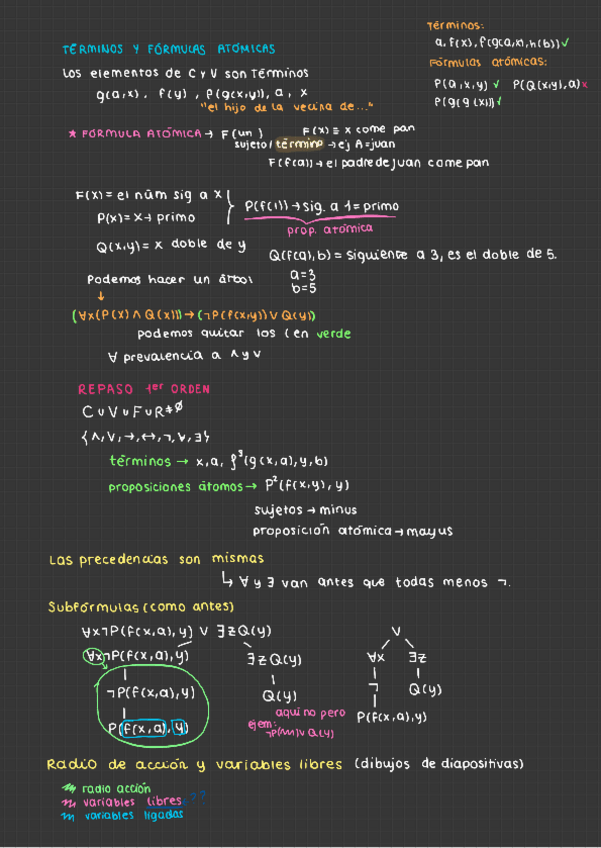 Términos:
a, f(x), f(g(a,x), h(b)) ✓
Fórmulas atómicas:
P(a,x,y) ✓ P(Q(x,y),a) x
P(g(g(x))) ✓
TÉRMINOS Y FÓRMULAS ATÓMICAS
Los elementos de C y V son Términos
g(a,x), f(y), f(g(x)), a, x
"el hijo de la vecina de..."
* FÓRMULA ATÓMICA → F(un ) F(x) ≡ x come pan
sujeto/término → ej A=juan
F(f(a)) → el padre de Juan come pan
F(x) = el núm sig a x
P(x) = x → primo
P(f(1)) → sig. a 1 = primo
prop. atómica
Q(x,y) = x doble de y
Q(f(a),b) = siguiente a 3, es el doble de 5.
a=3
b=5
Podemos hacer un árbol
↓
(∀x(P(x) ∧ Q(x))) → (¬P(f(x,y)) ∨ Q(y))
podemos quitar los ( en verde
∀ prevalencia a ∧ y ∨
REPASO 1er ORDEN
C ∪ V ∪ F ∪ R ≠ ∅
{∧, ∨, →, ↔, ¬, ∀, ∃}
términos → x, a, f³(g(x,a), y, b)
proposiciones átomos → P²(f(x,y), y)
sujetos → minus
proposición atómica → mayus
Las precedencias son mismas
↳ ∀ y ∃ van antes que todas menos ¬.
Subfórmulas (como antes)
∀x¬P(f(x,a),y) ∨ ∃zQ(y)
∀x¬P(f(x,a),y)
∃zQ(y)
¬P(f(x,a),y)
Q(y)
P(f(x,a),y)
aquí no pero
ejem:
∨
∀x ∃z
¬ Q(y)
P(f(x,a),y)
Radio de acción y variables libres (dibujos de diapositivas)
radio acción
variables libres ??
variables ligadas